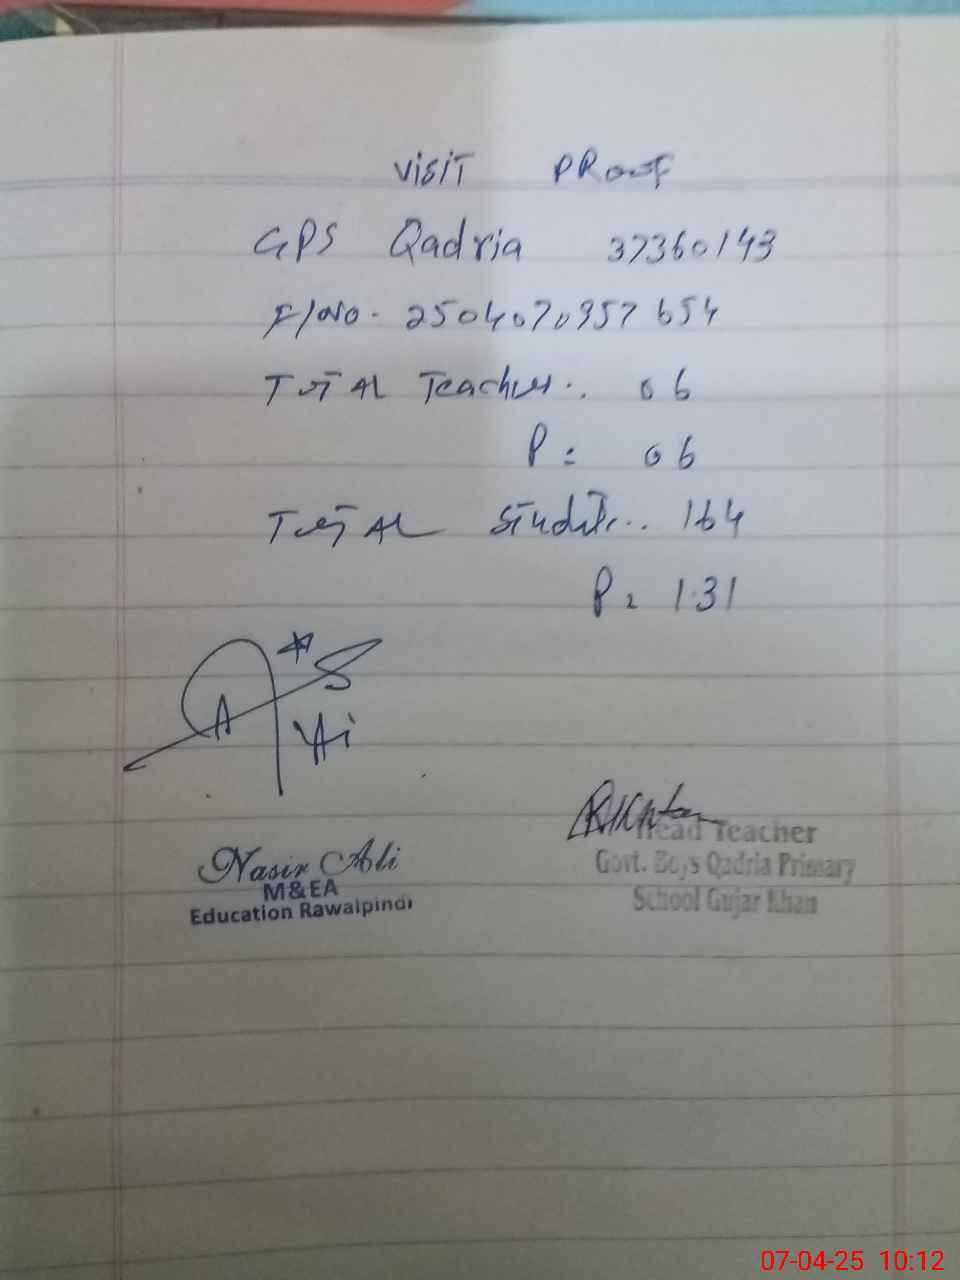 VISIT PROOF
GPS Qadria 37360143
F/No. 2504070957654
TOTAL Teachers. 06
P = 06
TOTAL Students. 164
P = 131
Nasir Ali
M&EA
Education Rawalpindi
Head Teacher
Govt. Boys Qadria Primary
School Gujar Khan
07-04-25 10:12